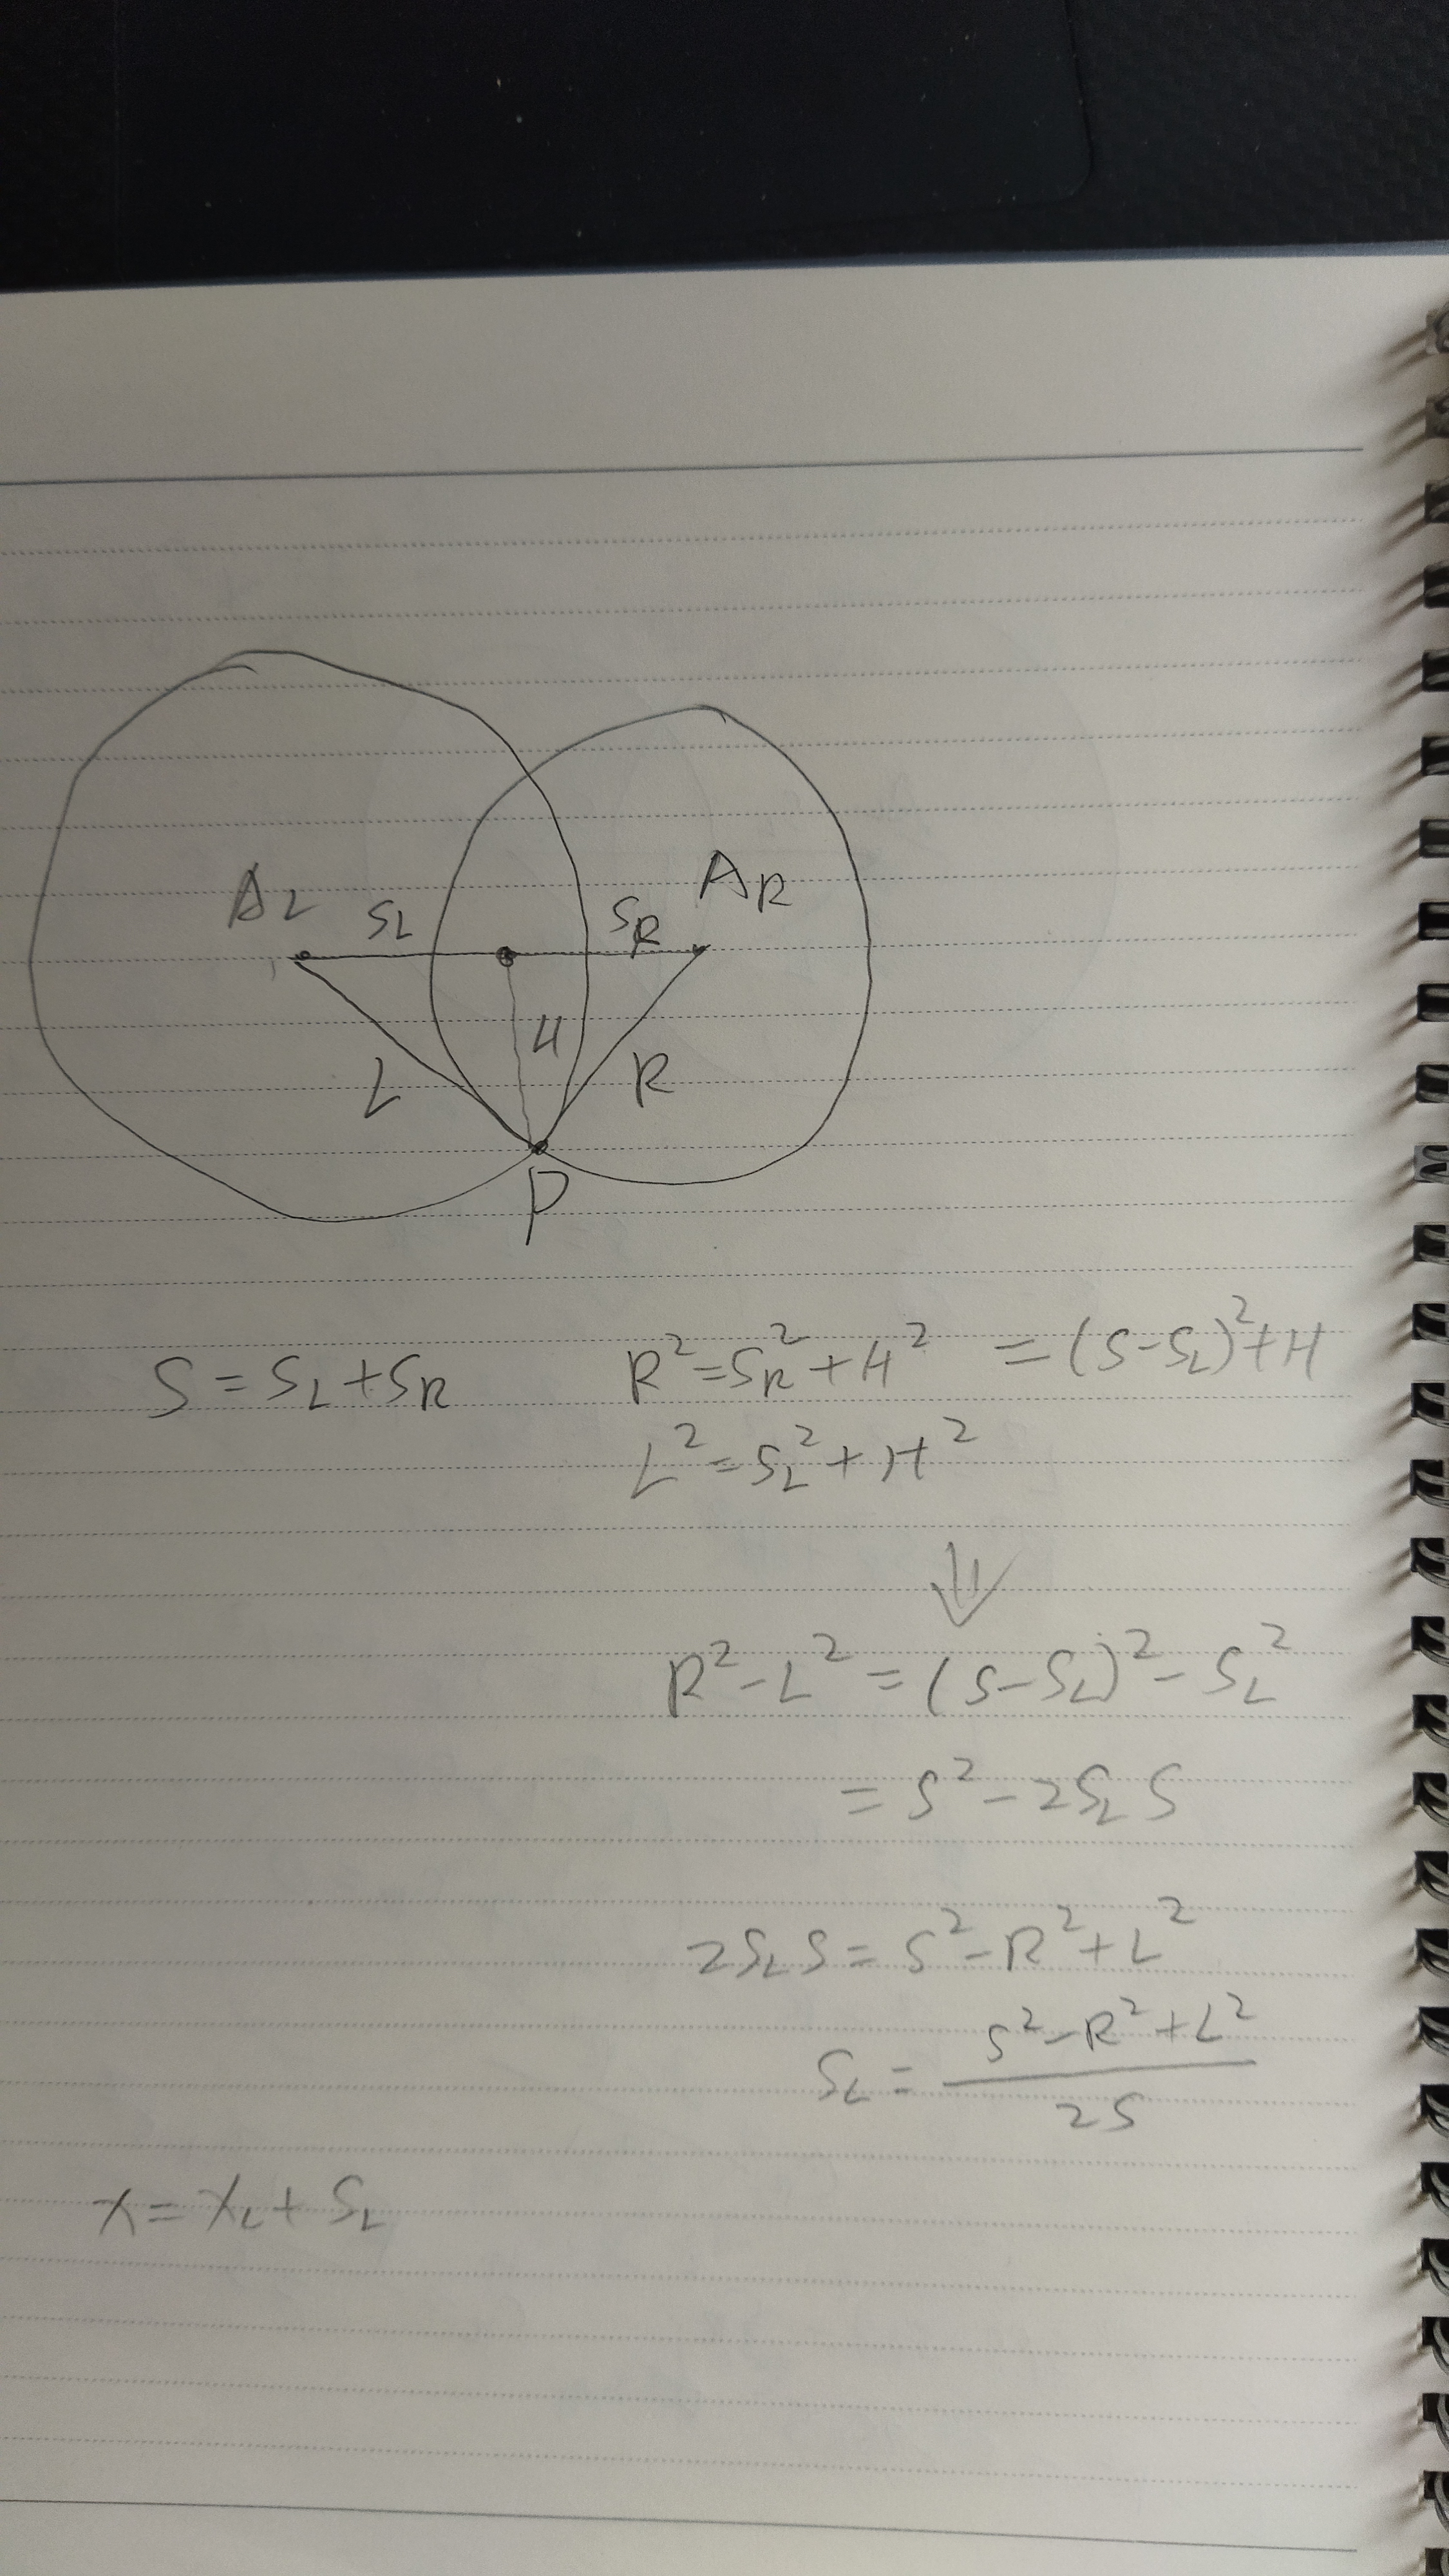 A_L S_L S_R A_R
L H R
P
S = S_L + S_R R² = S_R² + H² = (S - S_L)² + H
L² = S_L² + H²
⇓
R² - L² = (S - S_L)² - S_L²
= S² - 2S_L S
2S_L S = S² - R² + L²
S_L = \frac{S² - R² + L²}{2S}
X = X_L + S_L